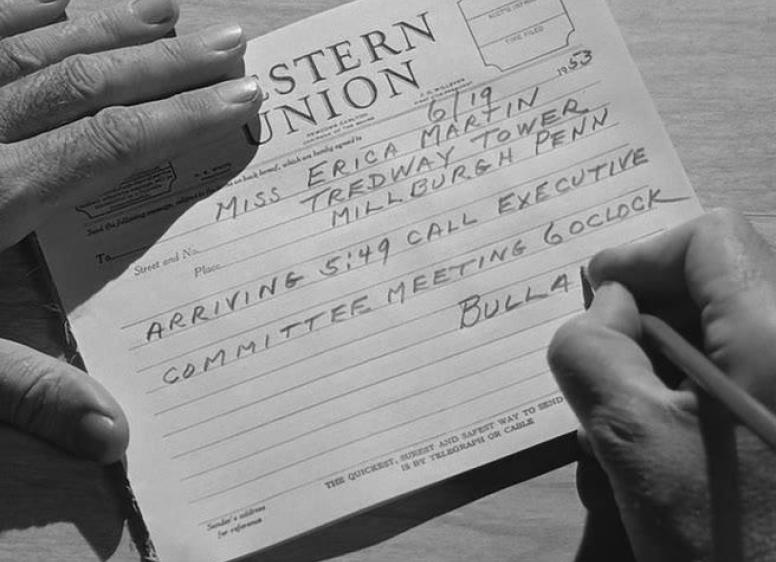 ESTERN
UNION
TIME FILED
1953
6/19
MISS ERICA MARTIN
TREDWAY TOWER
MILLBURGH PENN
To
Street and No.
Place
ARRIVING 5:49 CALL EXECUTIVE
COMMITTEE MEETING 6 OCLOCK
BULLA
THE QUICKEST, SUREST AND SAFEST WAY TO SEND
IS BY TELEGRAPH OR CABLE
Sender's address
for reference